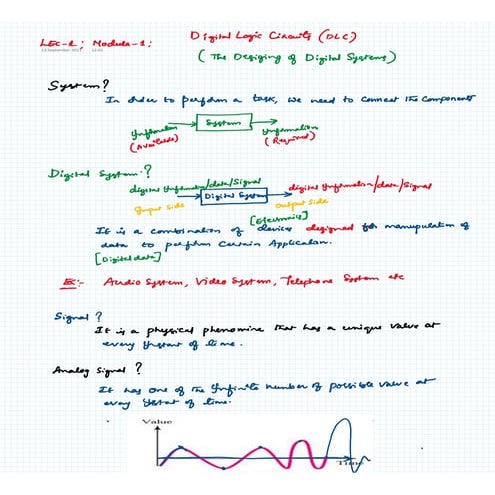 LEC-1; Module-1:
Digital Logic Circuits (DLC)
(The Desiging of Digital Systems)
System?
In order to perform a task, we need to connect the components
Information
(Available)
System
Information
(Required)
Digital System?
digital Information/data/Signal
Input side
Digital System
digital Information/data/Signal
output side
[Electronics]
It is a combination of devices designed for manupulation of
data to perform Certain Application.
[Digital data]
Ex:- Audio System, Video System, Telephone System etc
Signal?
It is a physical phenomine that has a unique value at
every Instant of time.
Analog Signal?
It has one of the Infinite number of possible value at
Instat of time.
Value
Time